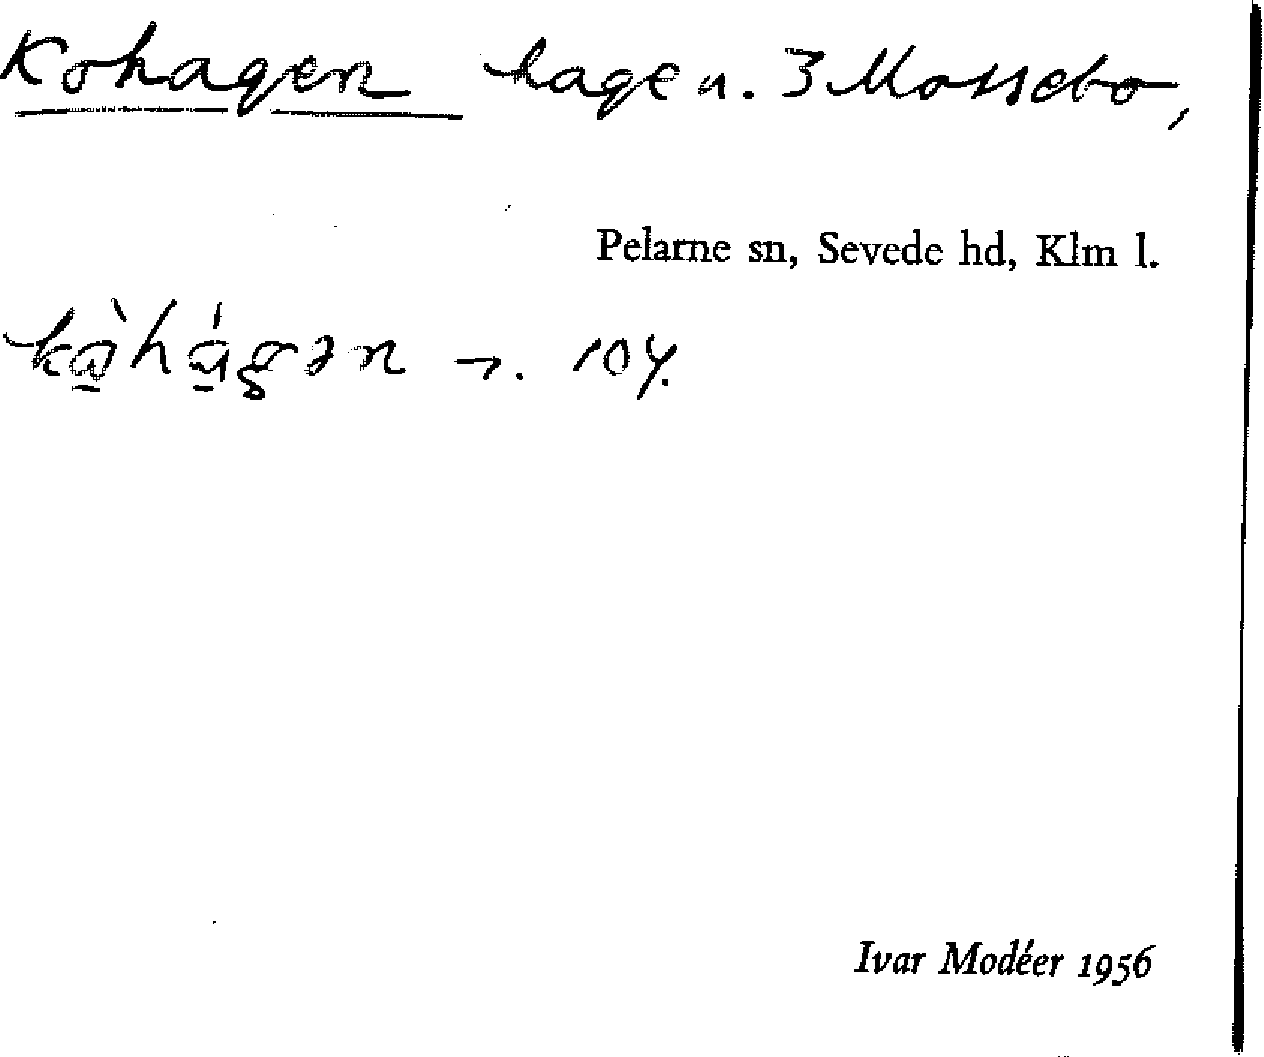 Kohagen hage u. 3 Mossebo,
Pelarne sn, Sevede hd, Klm l.
104.
Ivar Modéer 1956